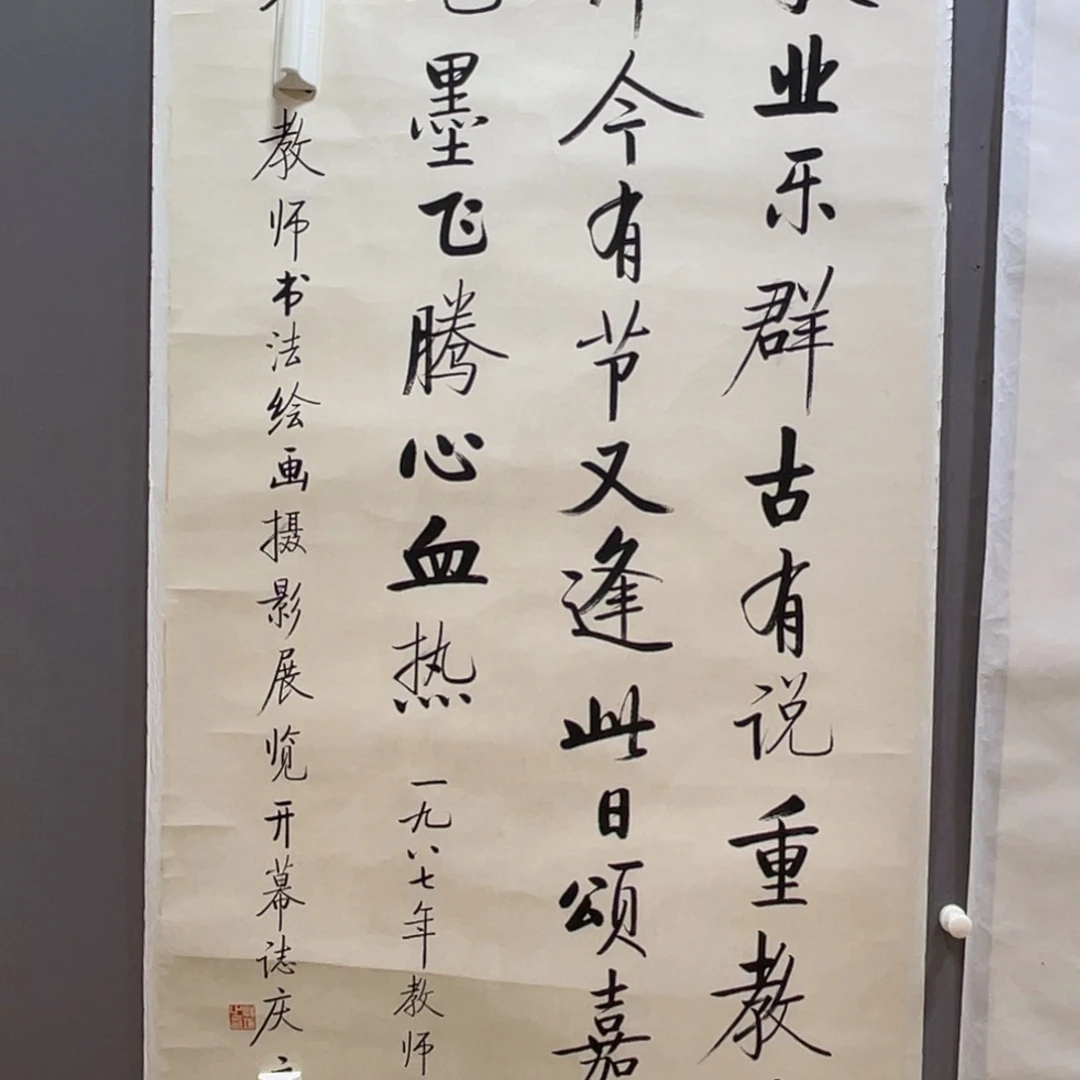 业乐群古有说重教
今有节又逢此日颂嘉
墨飞腾心血热 一九八七年教师
教师书法绘画摄影展览开幕誌庆